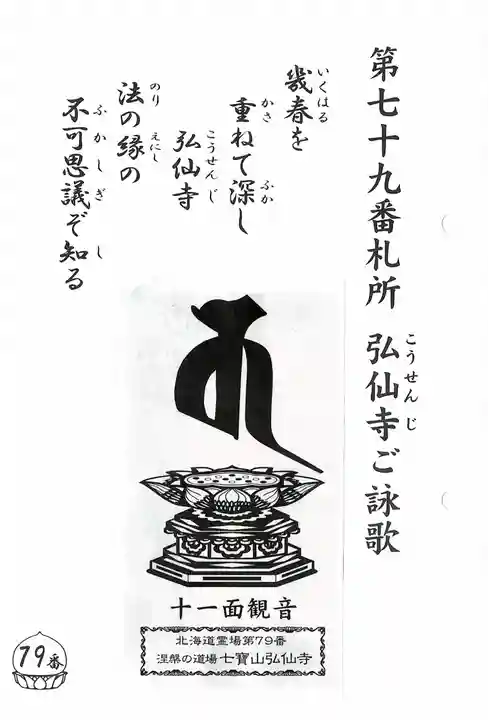 第七十九番札所 弘仙寺ご詠歌
こうせんじ
幾春を
いくはる
重ねて深し
かさ ふか
弘仙寺
こうせんじ
法の縁の
のり えにし
不可思議ぞ知る
ふかしぎ し
十一面観音
北海道霊場第79番
涅槃の道場 七寶山弘仙寺
79番